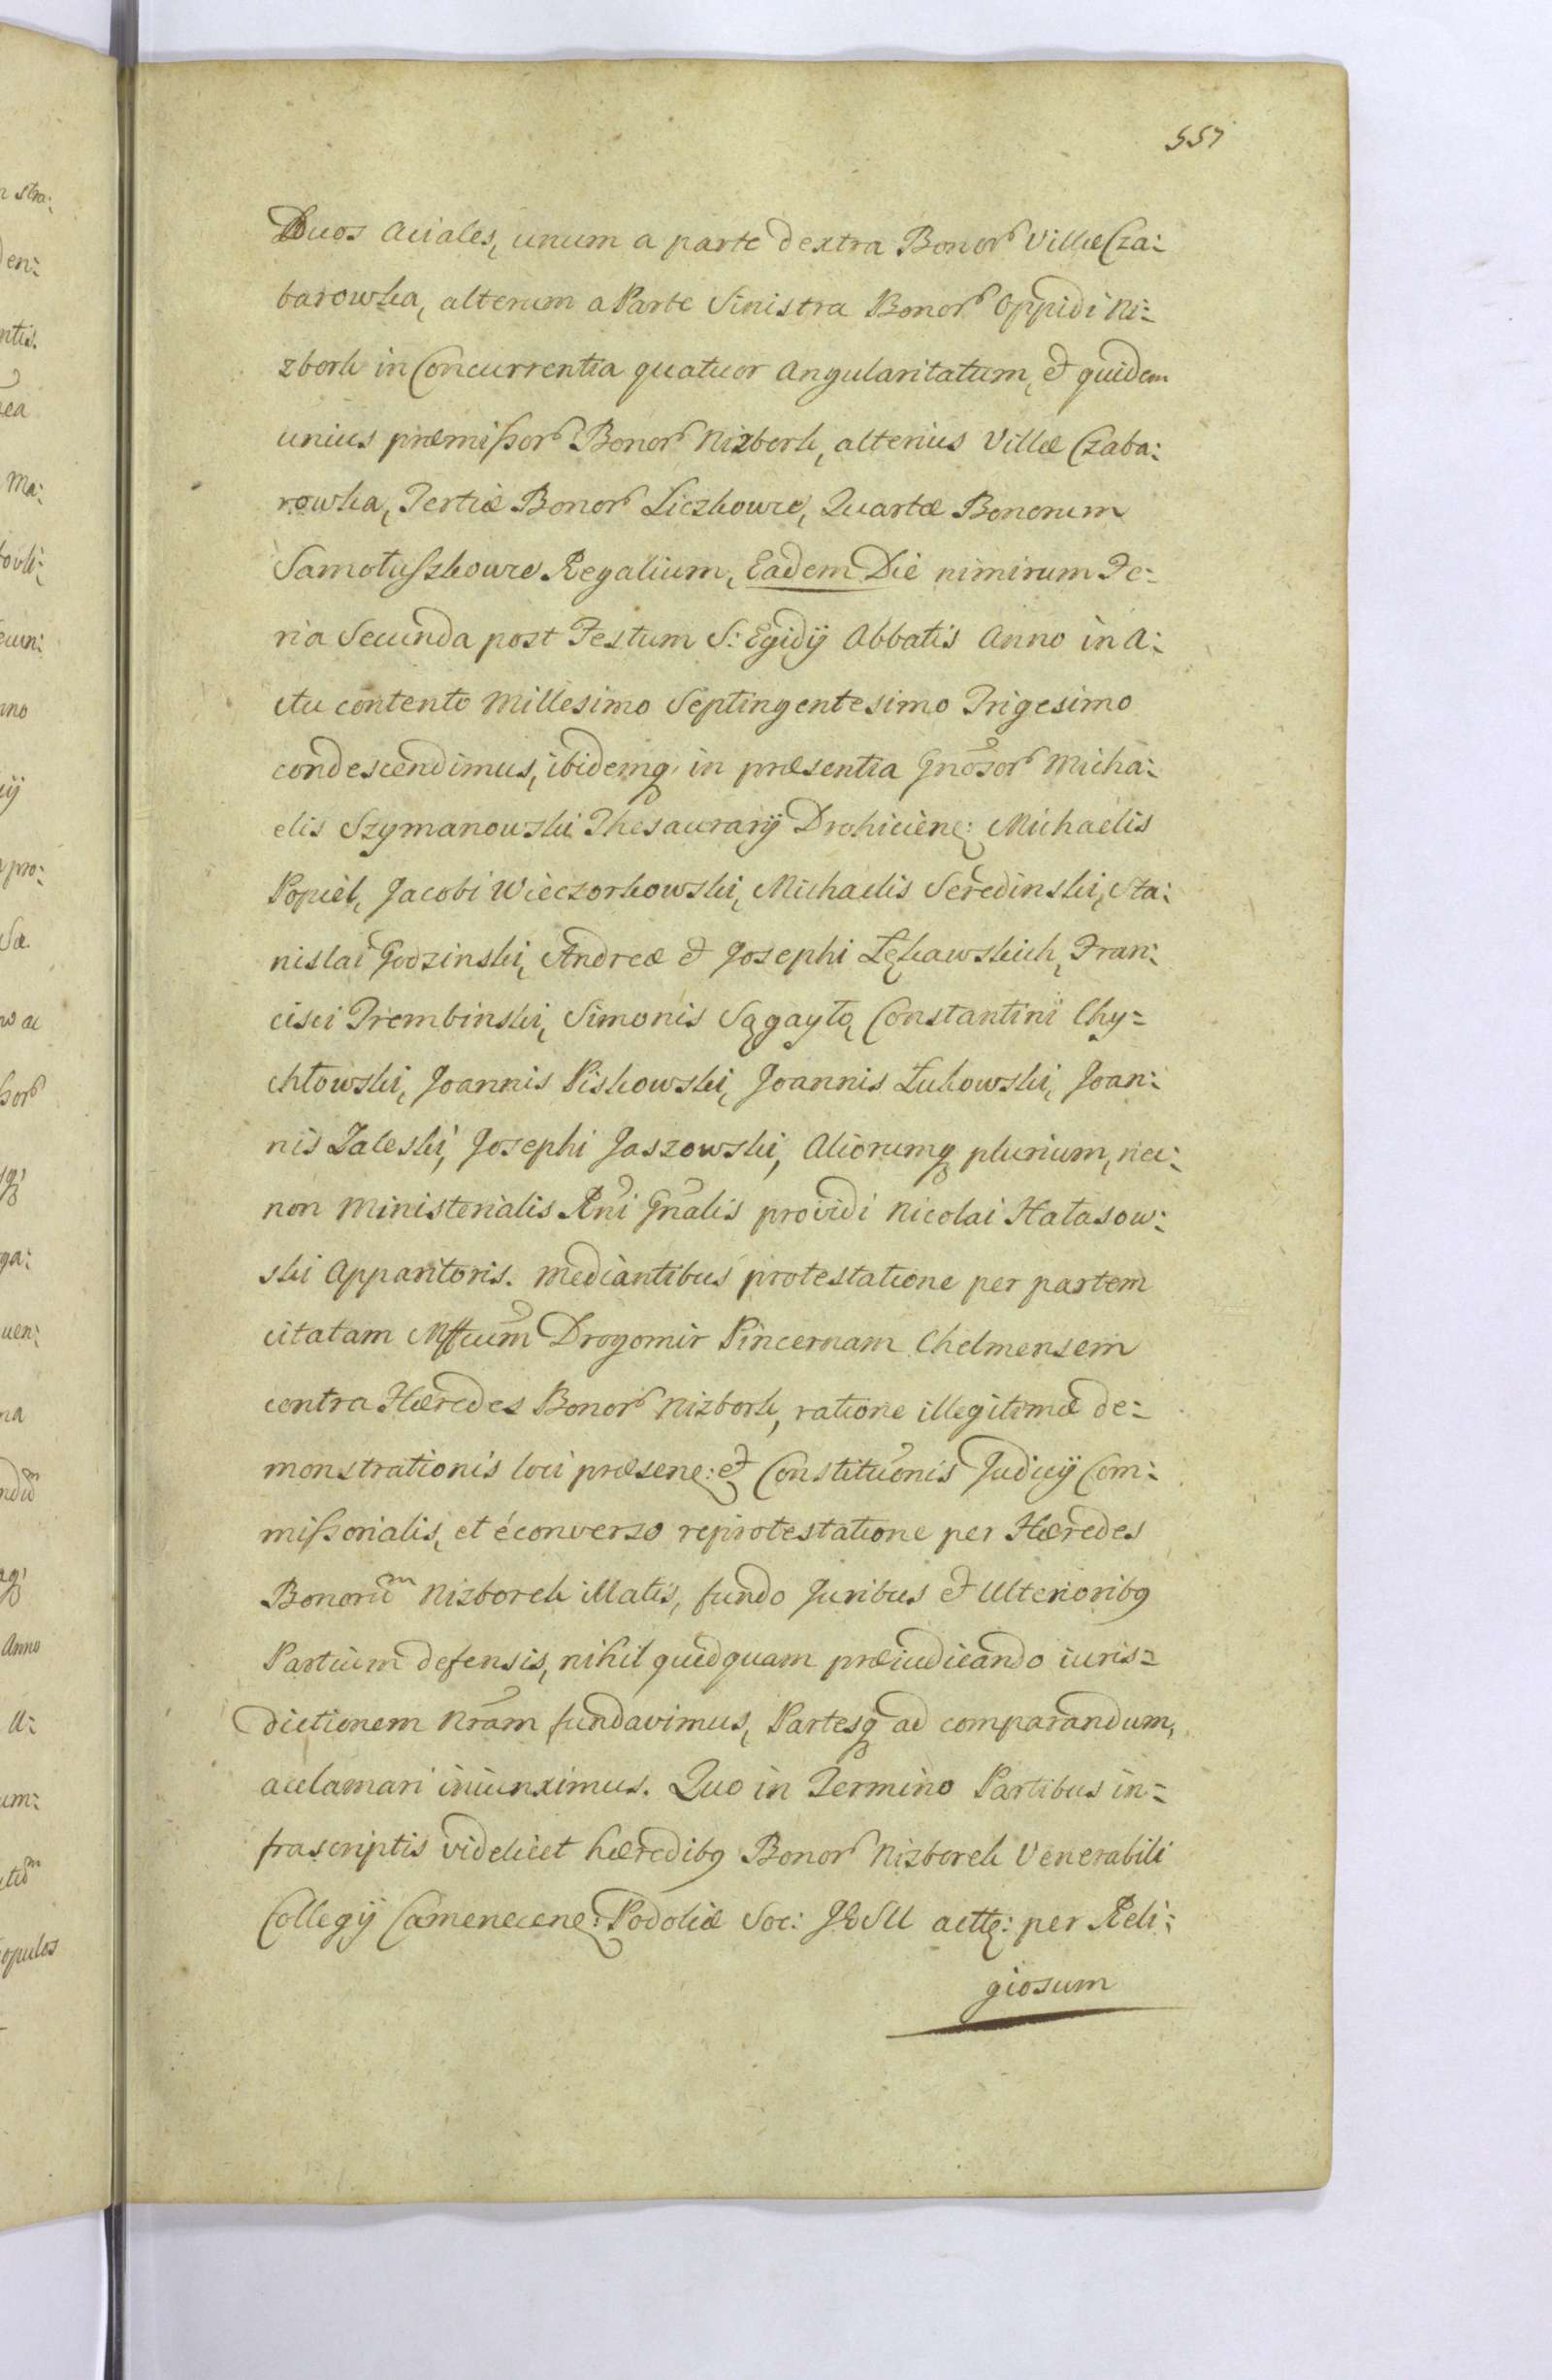 557
Duos Aciales, unum a parte dextra Bonor Villæ Cza:
barowka, alterum a Parte Sinistra Bonor Oppidi Ni:
zbork in Concurrentia quatuor Angularitatum, et quidem
unius præmißor Bonor Nizbork, alterius Villæ Czaba:
rowka, Tertiæ Bonor Liczkowce, Quartæ Bonorum
Samołuszkowce Regalium, Eadem Die nimirum Fe:
ria Secunda post Festum S: Egidÿ Abbatis Anno in A:
ctu contento Millesimo Septingentesimo Trigesimo
condescendimus, ibidemq in præsentia Gnosor Micha:
elis Szymanowski Thesaurarÿ Drohicien: Michaelis
Popiel, Jacobi Wieczorkowski, Michaelis Seredinski, Sta:
nislai Godzinski, Andreæ et Josephi Łękawskich, Fran:
cisci Trembinski, Simonis Sągayło, Constantini Chy:
chłowski, Joannis Piskowski, Joannis Łukowski, Joan:
nis Zaleski, Josephi Jaszowski, Aliorumq plurium, nec:
non Ministerialis Rni Gnalis providi Nicolai Hałasow:
ski Apparitoris. Mediantibus protestatione per partem
citatam Mffcum Drogomir Pincernam Chelmensem
contra Hæredes Bonor Nizbork, ratione illegitimæ de:
monstrationis loci præsen: et Constituonis Judicÿ Com:
mißorialis, et éconverso reprotestatione per Hæredes
Bonorum Nizborek illatis, fundo Juribus et Ulterioribq
Partium defensis, nihil quidquam præiudicando iuris:
dictionem Nram fundavimus, Partesq ad comparandum,
acclamari iniunximus. Quo in Termino Partibus in:
frascriptis videlicet hæredibq Bonor Nizborek Venerabili
Collegÿ Camenecen: Podoliæ Soc: JESU actt: per Reli:
giosum